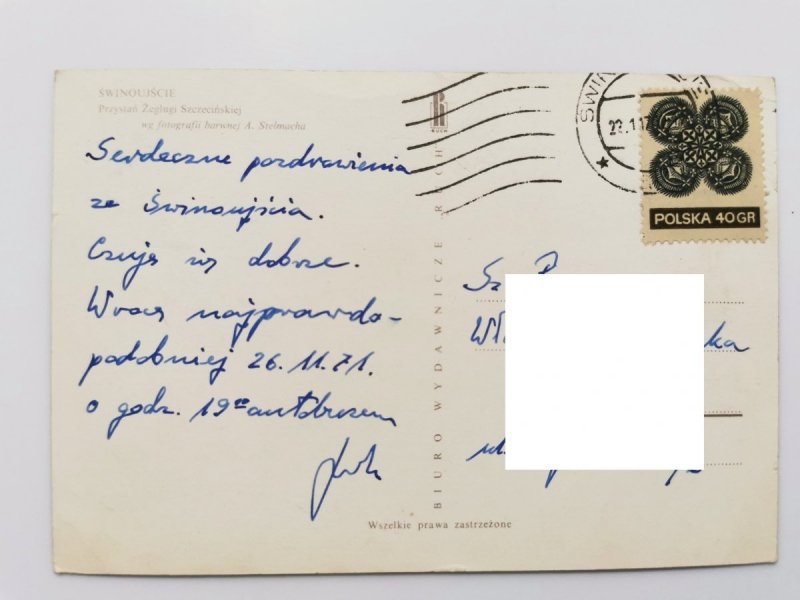 ŚWINOUJŚCIE
Przystań Żeglugi Szczecińskiej
wg fotografii barwnej A. Stelmacha
Serdeczne pozdrowienia
ze Świnoujścia.
Czuję się dobrze.
Wracę najprawdo-
podobniej 26.11.71.
o godz. 19⁰⁰ autobusem
RUCH
BIURO WYDAWNICZE RUCH
POLSKA 40GR
Sz. P.
Wszelkie prawa zastrzeżone